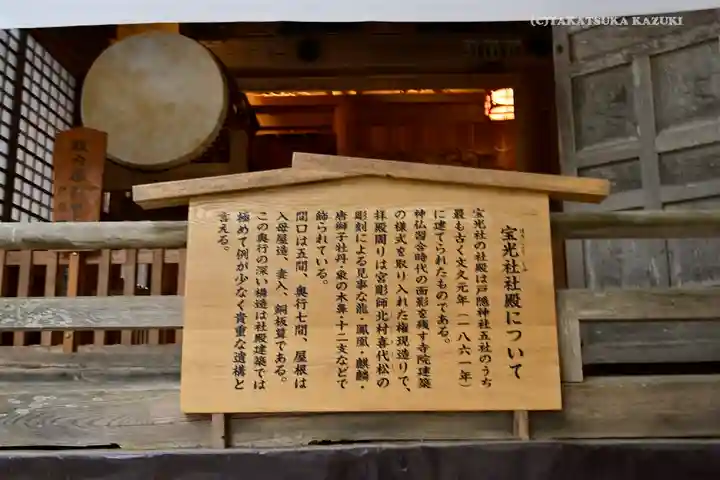 (C)TAKATSUKA KAZUKI
宝光社社殿について
宝光社の社殿は戸隠神社五社のうち
最も古く文久元年(一八六一年)
に建てられたものである。
神仏習合時代の面影を残す寺院建築
の様式を取り入れた権現造りで、
拝殿周りは宮彫師北村喜代松の
彫刻による見事な龍・鳳凰・麒麟・
唐獅子牡丹・象の木鼻・十二支などで
飾られている。
間口は五間、奥行七間、屋根は
入母屋造、妻入、銅板葺である。
この奥行の深い構造は社殿建築では
極めて例が少なく貴重な遺構と
言える。